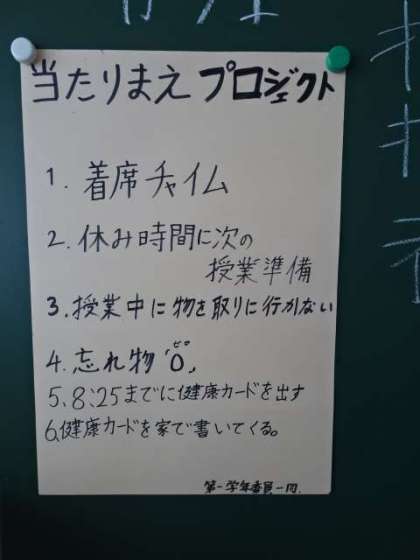 当たりまえプロジェクト
1. 着席チャイム
2. 休み時間に次の
授業準備
3. 授業中に物を取りに行かない
4. 忘れ物「0」
ゼロ
5. 8:25までに健康カードを出す
6. 健康カードを家で書いてくる。
第一学年委員一同.